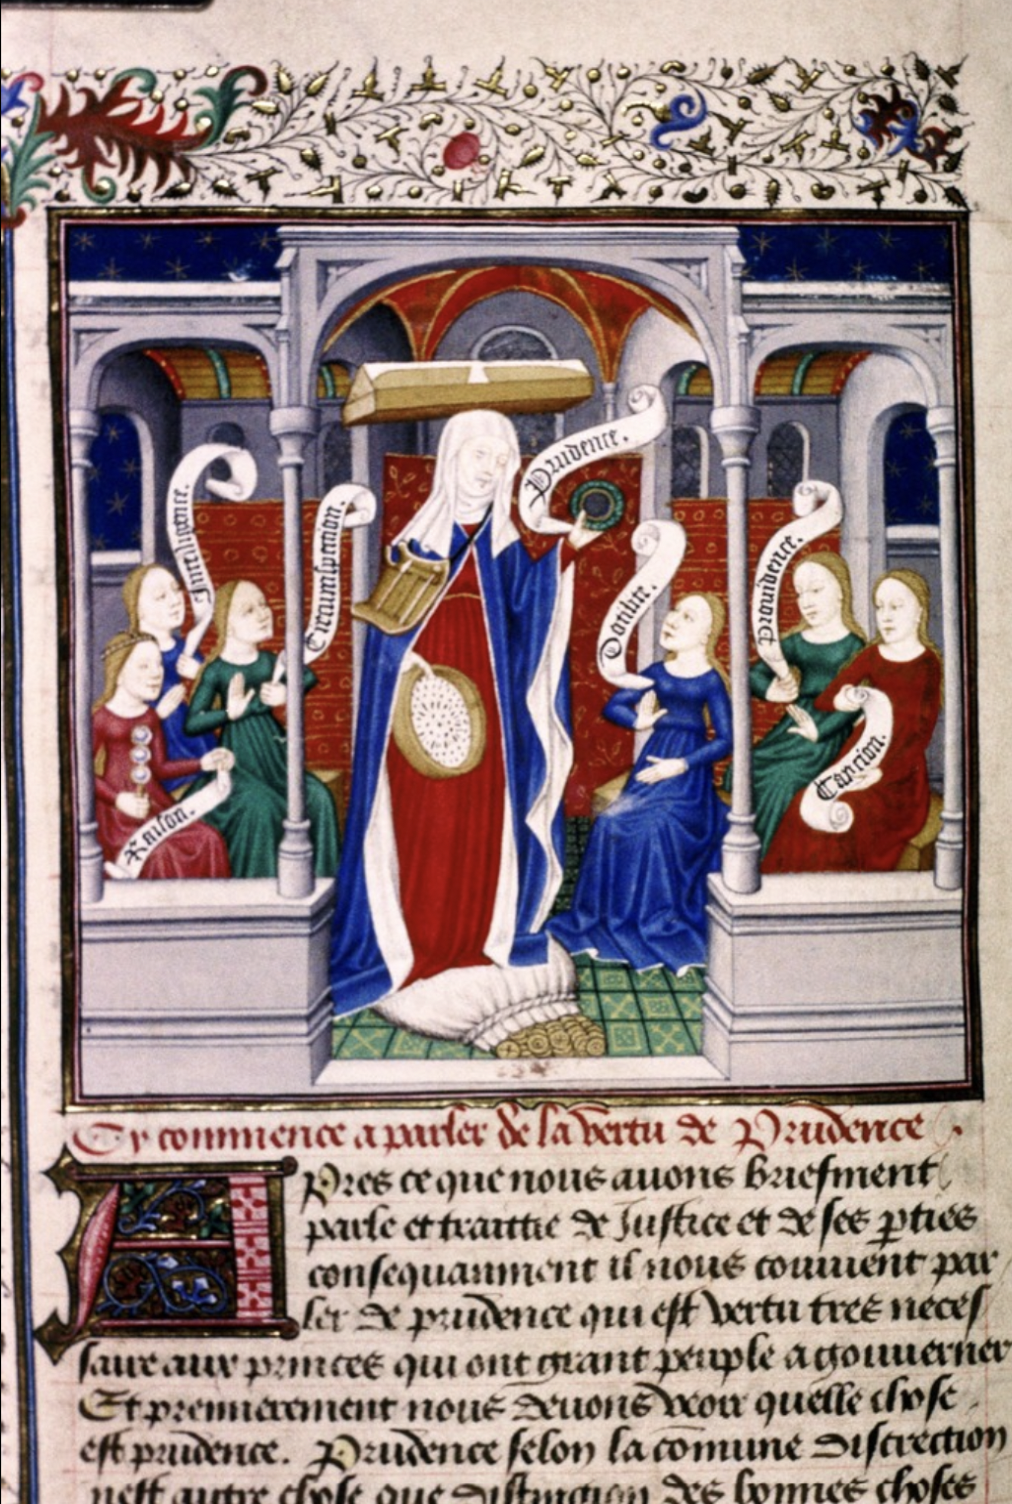 Intelligence.
Circumspection.
Prudence.
Docilite.
Prouidence.
Raison.
Caucion.
Cy commence a parler de la vertu de Prudence.
Apres ce que nous auons briefment
parle et traittie de Justice et de ses pties
consequanment il nous conuient par
ler de prudence qui est vertu tres neces
saire aux princes qui ont grant peuple a gouuerner
Et premierement nous deuons veoir quelle chose
est prudence. Prudence selon la comune discrection
nest autre chose que distinction des bonnes choses